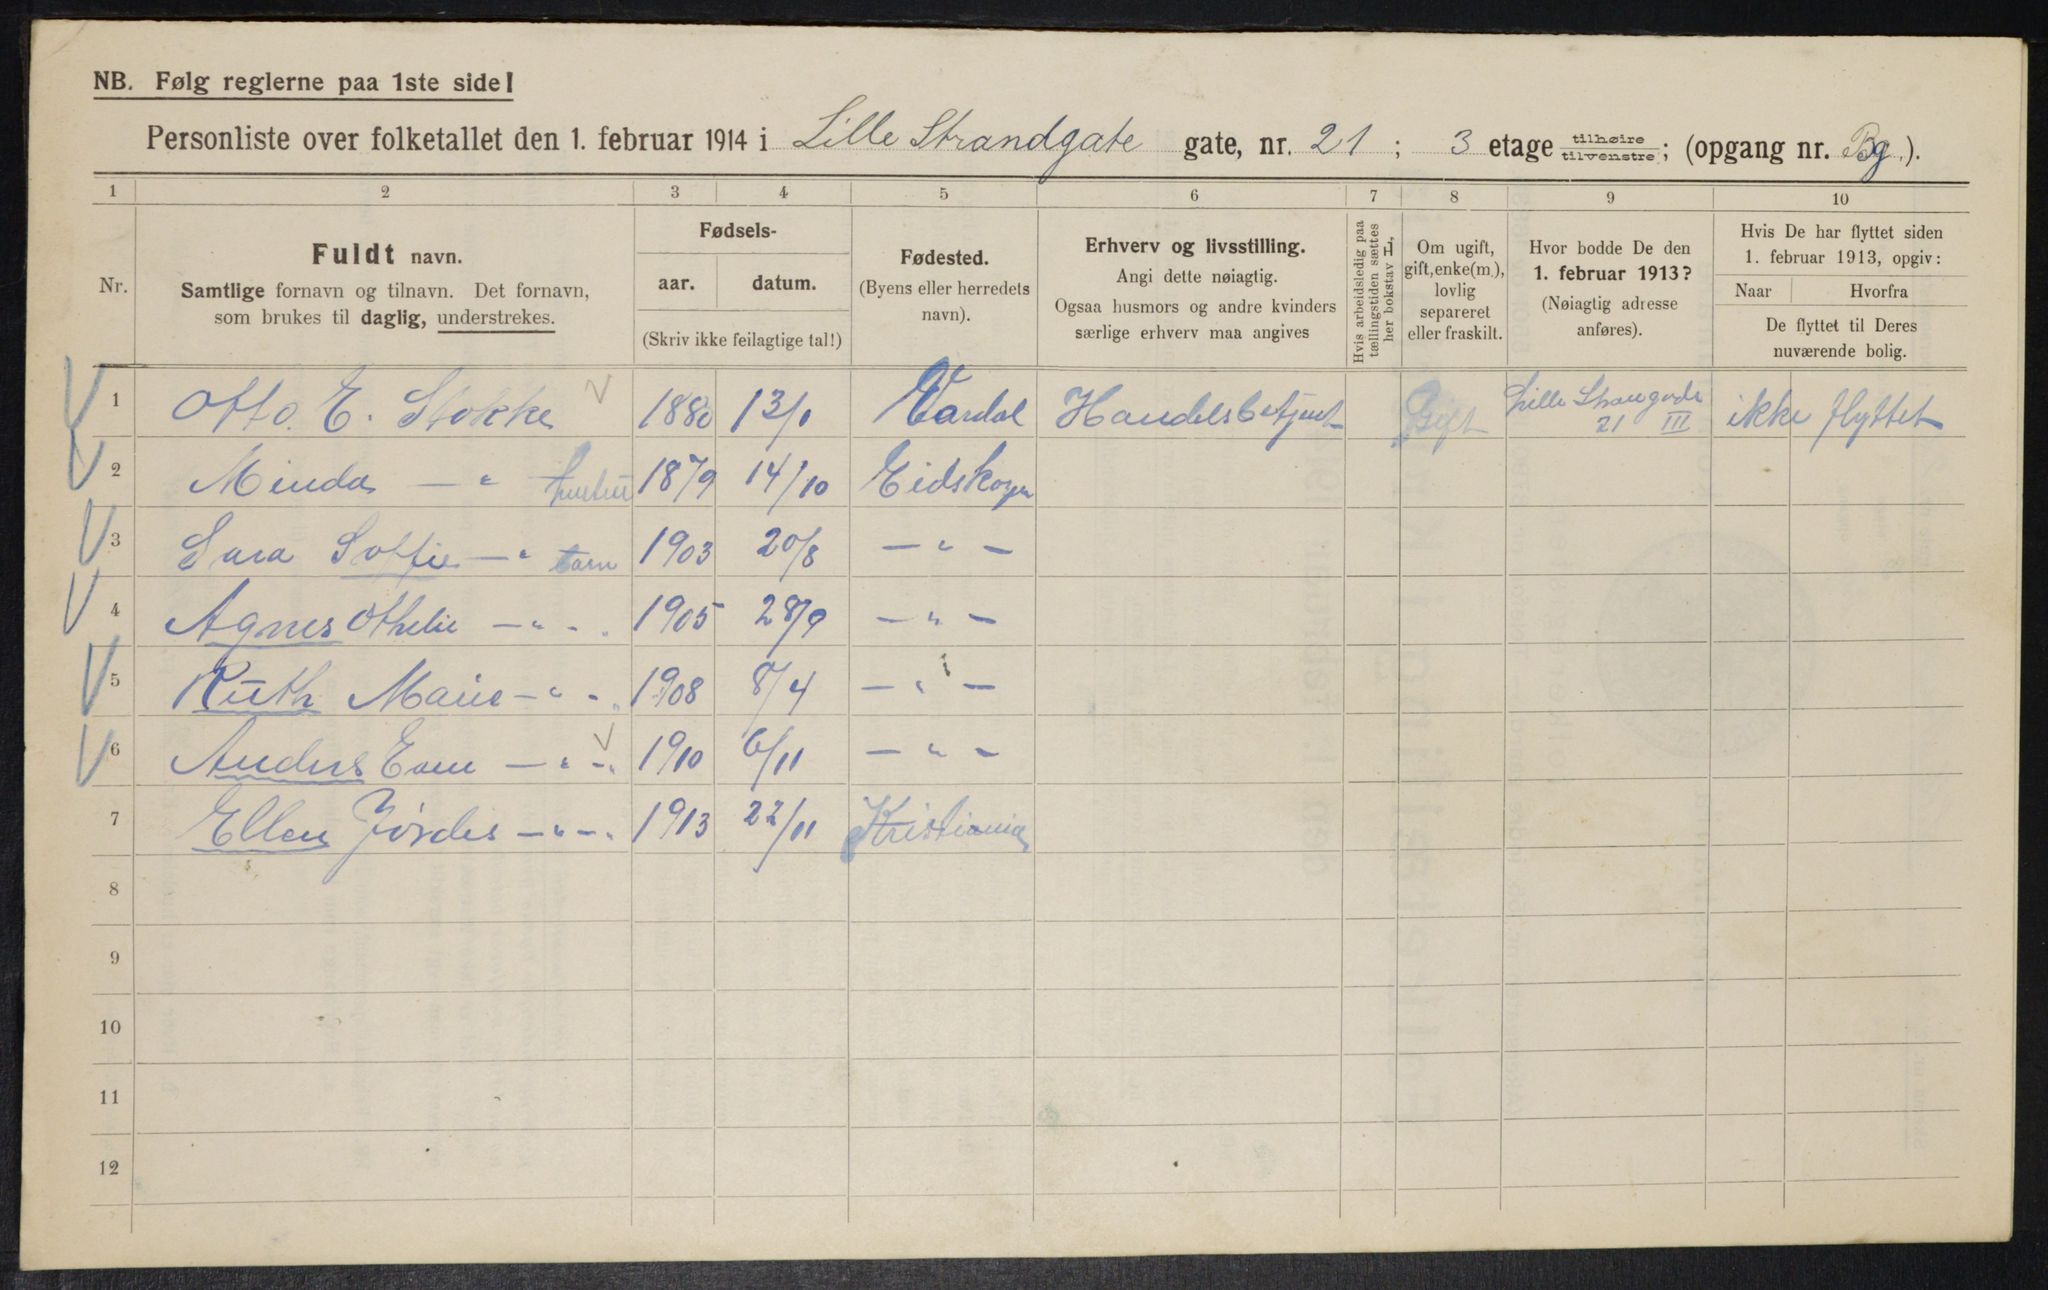 NB. Følg reglerne paa 1ste side!
Personliste over folketallet den 1. februar 1914 i Lille Strandgate gate, nr. 21 ; 3 etage tilhøire tilvenstre ; (opgang nr. Bg.).
1 2 3 4 5 6 7 8 9 10
Nr.
Fuldt navn.
Samtlige fornavn og tilnavn. Det fornavn,
som brukes til daglig, understrekes.
Fødsels-
aar. datum.
(Skriv ikke feilagtige tal!)
Fødested.
(Byens eller herredets
navn).
Erhverv og livsstilling.
Angi dette nøiagtig.
Ogsaa husmors og andre kvinders
særlige erhverv maa angives
Hvis arbeidsledig paa
tællingstiden sættes
her bokstav L.
Om ugift,
gift, enke(m.),
lovlig
separeret
eller fraskilt.
Hvor bodde De den
1. februar 1913?
(Nøiagtig adresse
anføres).
Hvis De har flyttet siden
1. februar 1913, opgiv:
Naar Hvorfra
De flyttet til Deres
nuværende bolig.
1 Otto. E. Stokke 1880 13/1 Vardal Handelsbetjent Gift Lille Strangade 21 III ikke flyttet
2 Minda — " hustru 1879 14/10 Eidskogen
3 Sara Soffie — " barn 1903 20/8 — " —
4 Agnes Othelie — " - " 1905 28/9 — " —
5 Ruth Marie — " - " 1908 8/4 — " —
6 Anders — " - " 1910 6/11 — " —
7 Ellen Jørdis — " - " 1913 22/11 Kristiania
8
9
10
11
12